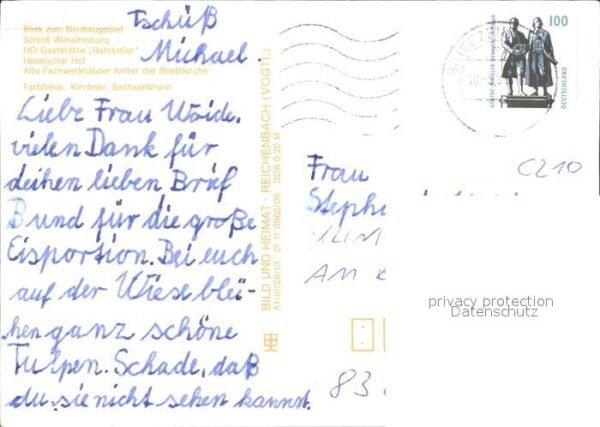 Tschüß
Michael.
Blick zum Neubaugebiet
Schloß Wilhelmsburg
HO-Gaststätte „Ratskeller"
Hessischer Hof
Alte Fachwerkhäuser hinter der Stadtkirche
Farbfotos: Kirchner, Sachsenbrunn
Liebe Frau Woide,
vielen Dank für
deihen lieben Brief
B und für die große
Eisportion. Bei euch
auf der Wiese blei-
hen ganz schöne
Tulpen. Schade, daß
du sie nicht sehen kannst.
BILD UND HEIMAT · REICHENBACH (VOGTL)
A1/III/26/13 01 11 0562/08 · DDR 0,20 M
100
DEUTSCHLAND
C210
Frau
Steph
AM
83
privacy protection
Datenschutz